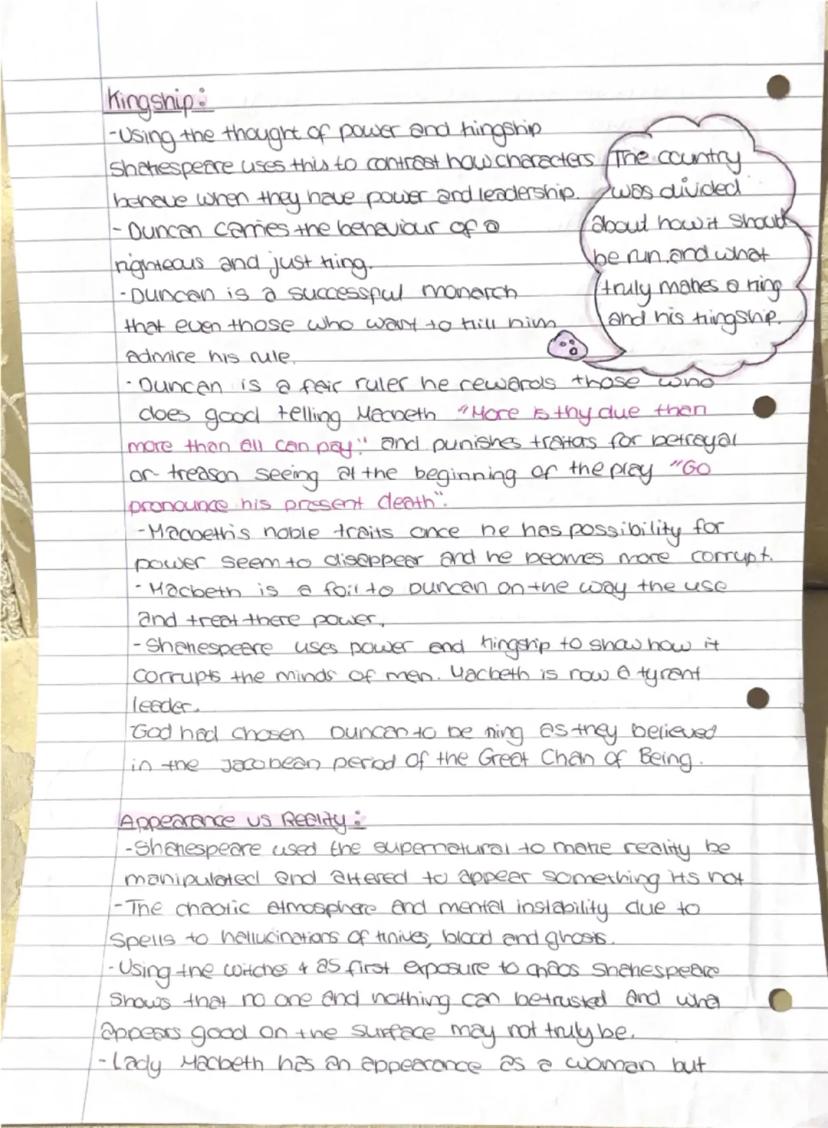 Kingship:
-Using the thought of power and kingship
Shakespeare uses this to contrast how characters
behave when they have power and leadership.
- Duncan carries the behaviour of a
righteous and just king.
-Duncan is a successful monarch
that even those who want to kill him
admire his rule.
The country
was divided
about how it should
be run, and what
truly makes a king
and his kingship.
- Duncan is a fair ruler he rewards those who
does good telling Macbeth "More is thy due than
more than all can pay." and punishes traitors for betrayal
or treason seeing at the beginning of the play "Go
pronounce his present death".
-Macbeth's noble traits once he has possibility for
power seem to disappear and he becomes more corrupt.
- Macbeth is a foil to Duncan on the way the use
and treat there power.
-Shakespeare uses power and kingship to show how it
corrupts the minds of men. Macbeth is now a tyrant
leader.
God had chosen Duncan to be king as they believed
in the Jacobean period of the Great Chan of Being.
Appearance vs Reality:
-Shakespeare used the supernatural to make reality be
manipulated and altered to appear something its not
-The chaotic atmosphere and mental instability due to
spells to hallucinations of knives, blood and ghosts.
-Using the witches as first exposure to chaos Shakespeare
shows that no one and nothing can be trusted and wha
appears good on the surface may not truly be.
-Lady Macbeth has an appearance as a woman but